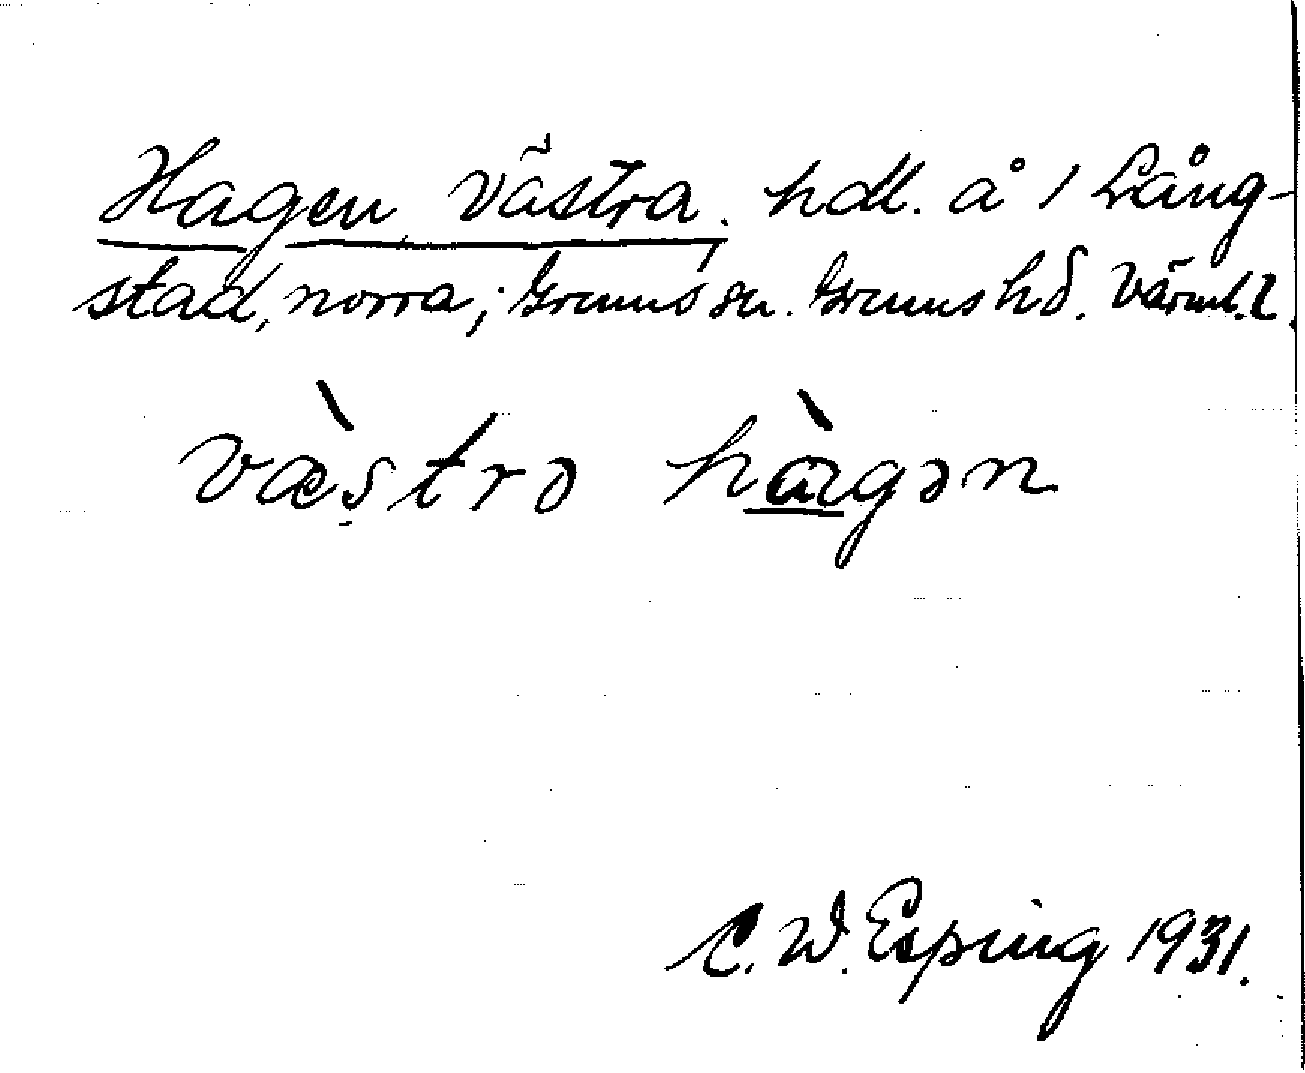 Hagen Västra, hdl. å 1 Lång-
stad, norra; Grums sn. Grums hd. Värml. l.
væ̀stro hàgən
C. W. Esping 1931.